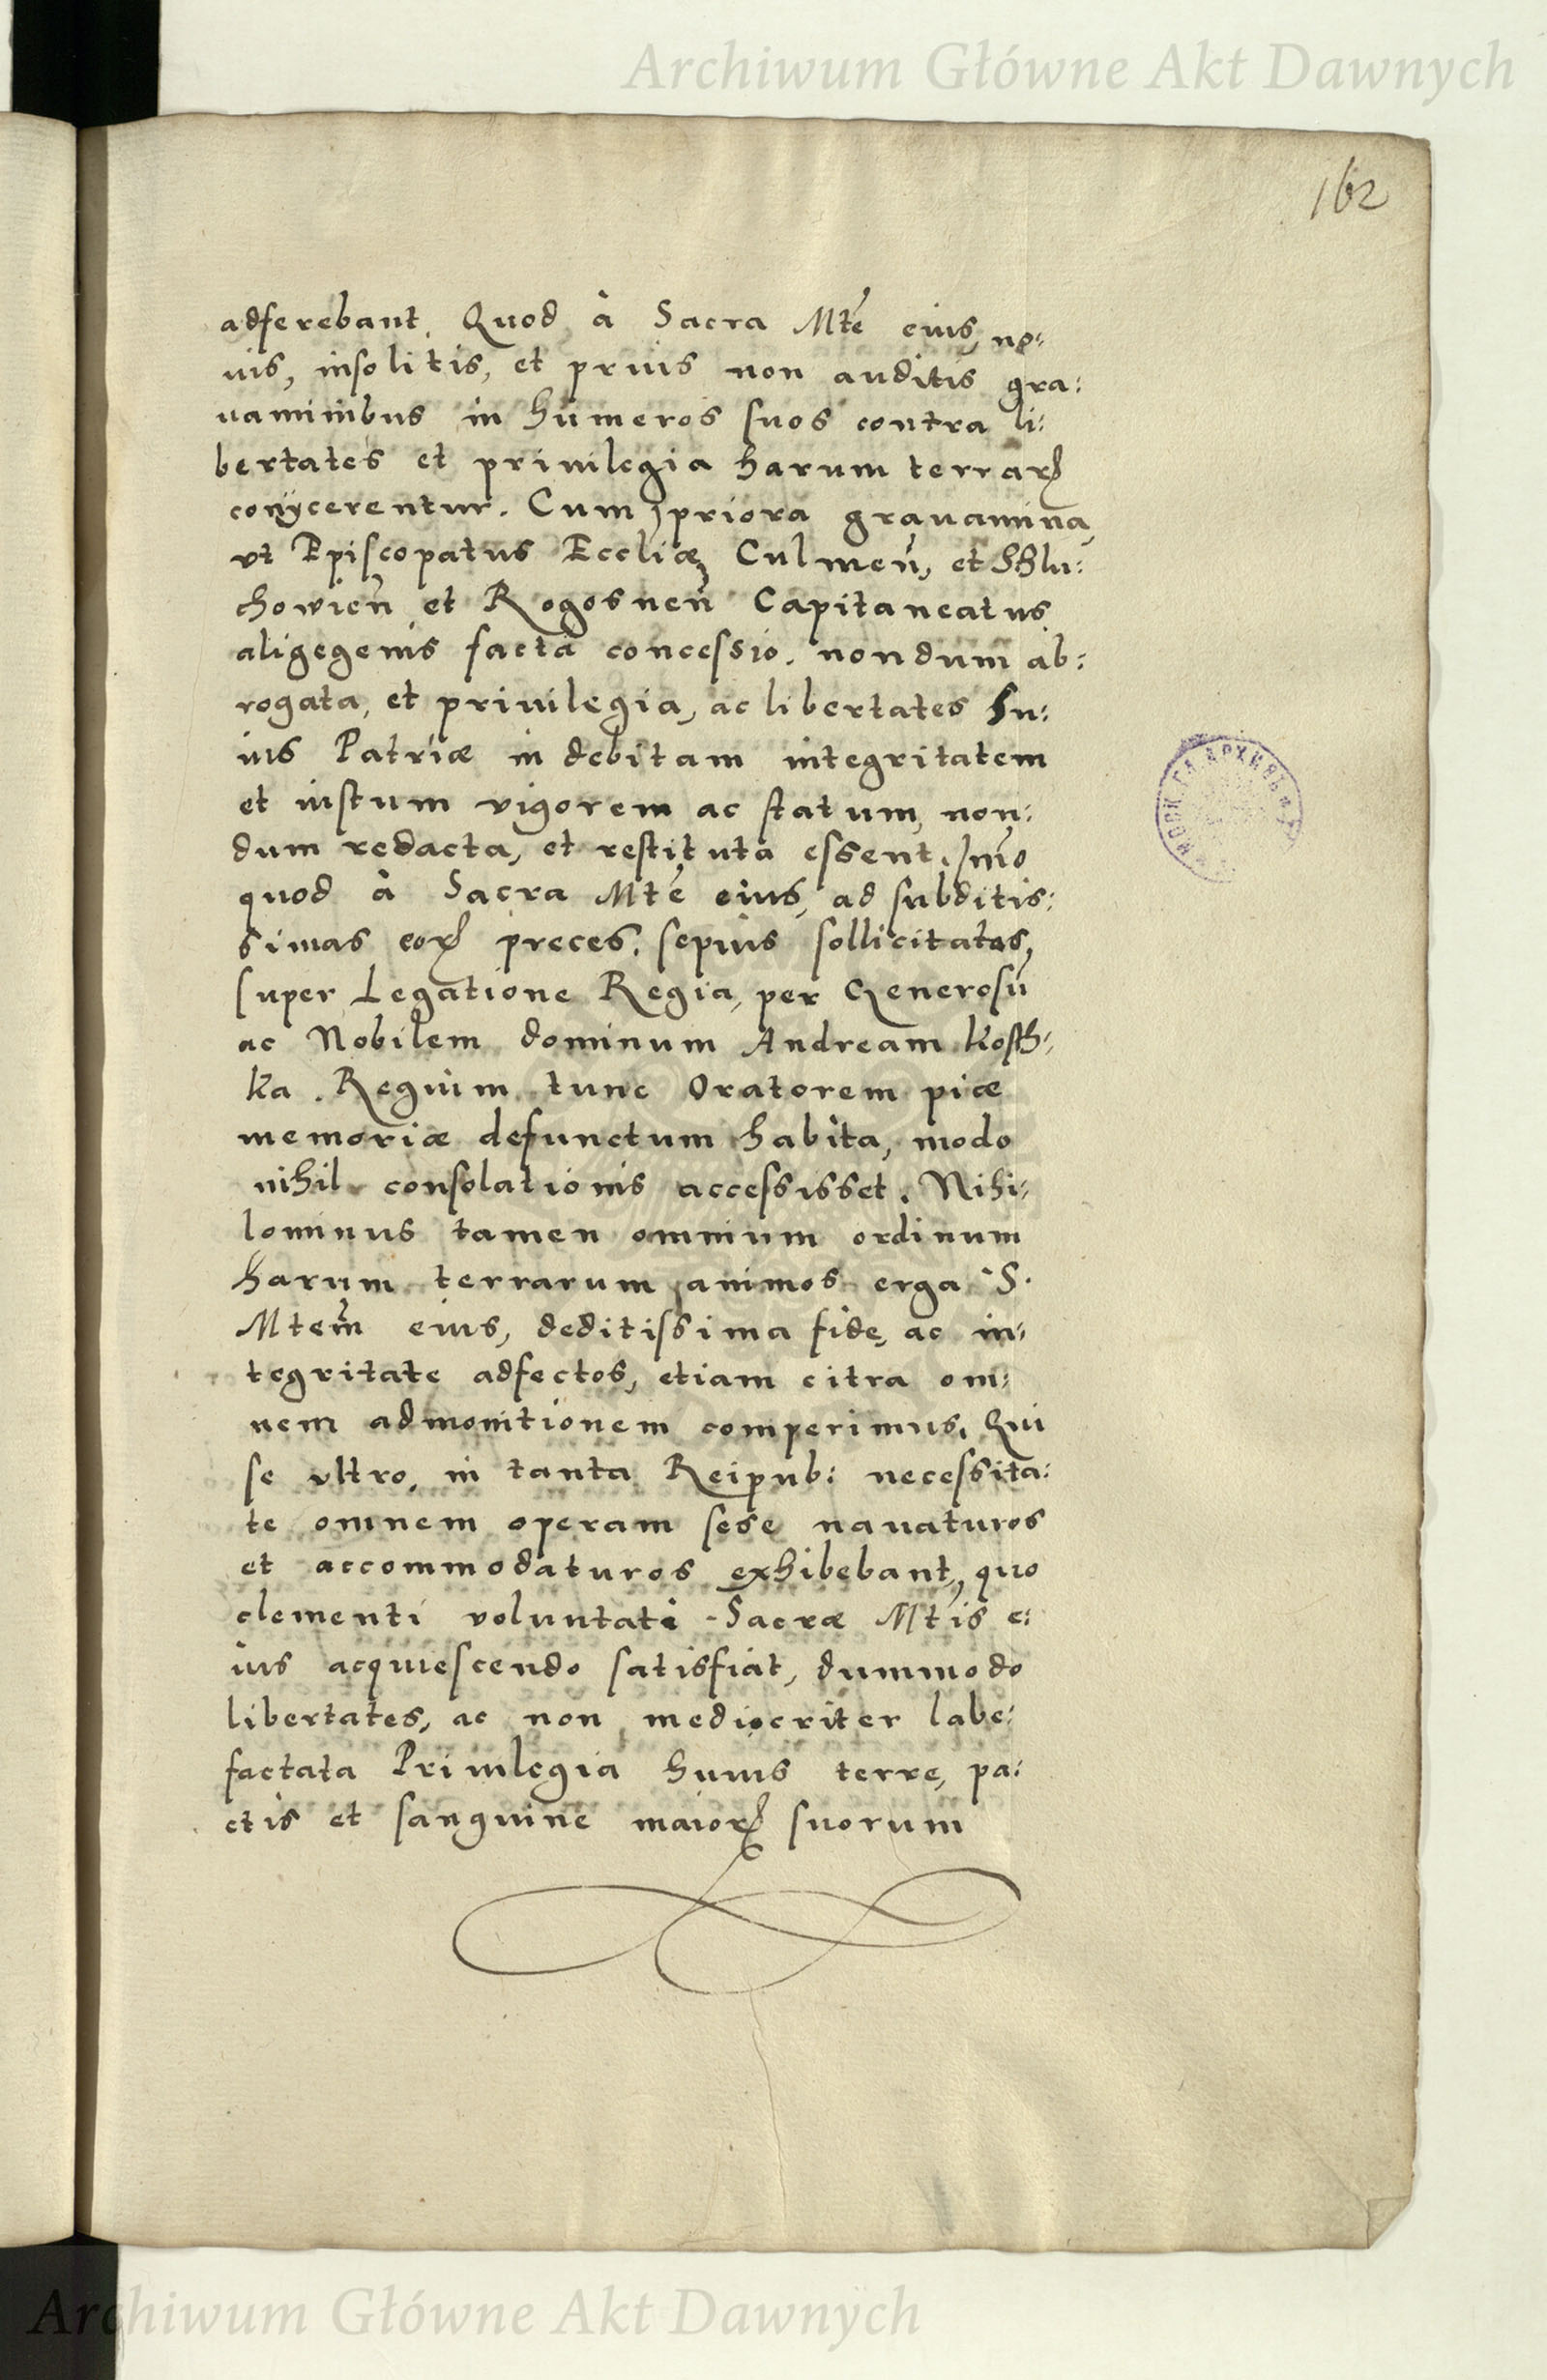 Archiwum Główne Akt Dawnych
162
adferebant. Quod à Sacra Mte eius, no:
uis, insolitis, et prius non auditis gra:
uaminibus in humeros suos contra li:
bertates et priuilegia harum terrarꝝ
conÿcerentur. Cum priora grauamina,
vt Episcopatus Eccliæ Culmen̄, et Shlu:
chowien̄ et Rogosnen̄ Capitaneatus
aligegenis facta concessio, nondum ab:
rogata, et priuilegia, ac libertates hu:
ius Patriæ in debitam integritatem
et iustum vigorem ac statum, non:
dum redacta, et restituta essent. Imo
quod à Sacra Mte eius, ad subditis:
simas eorꝝ preces, sepius sollicitatas,
super Legatione Regia, per Generosū
ac Nobilem dominum Andream Kosth:
ka. Regium tunc Oratorem piæ
memoriæ defunctum habita, modo
nihil consolationis accessisset. Nihi:
lominus tamen omnium ordinum
harum terrarum animos erga S.
Mtem̄ eius, deditissima fide, ac in:
tegritate adfectos, etiam citra om:
nem admonitionem comperimus. Qui
se vltro, in tanta Reipub: necessita:
te omnem operam sese nauaturos
et accommodaturos exhibebant, quo
clementi voluntati Sacræ Mtis e:
ius acquiescendo satisfiat, dummodo
libertates, ac non mediocriter labe:
factata Priuilegia huius terre, pa:
ctis et sanguine maiorꝝ suorum
Archiwum Główne Akt Dawnych